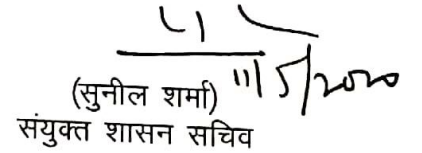 11/5/2020
(सुनील शर्मा)
संयुक्त शासन सचिव